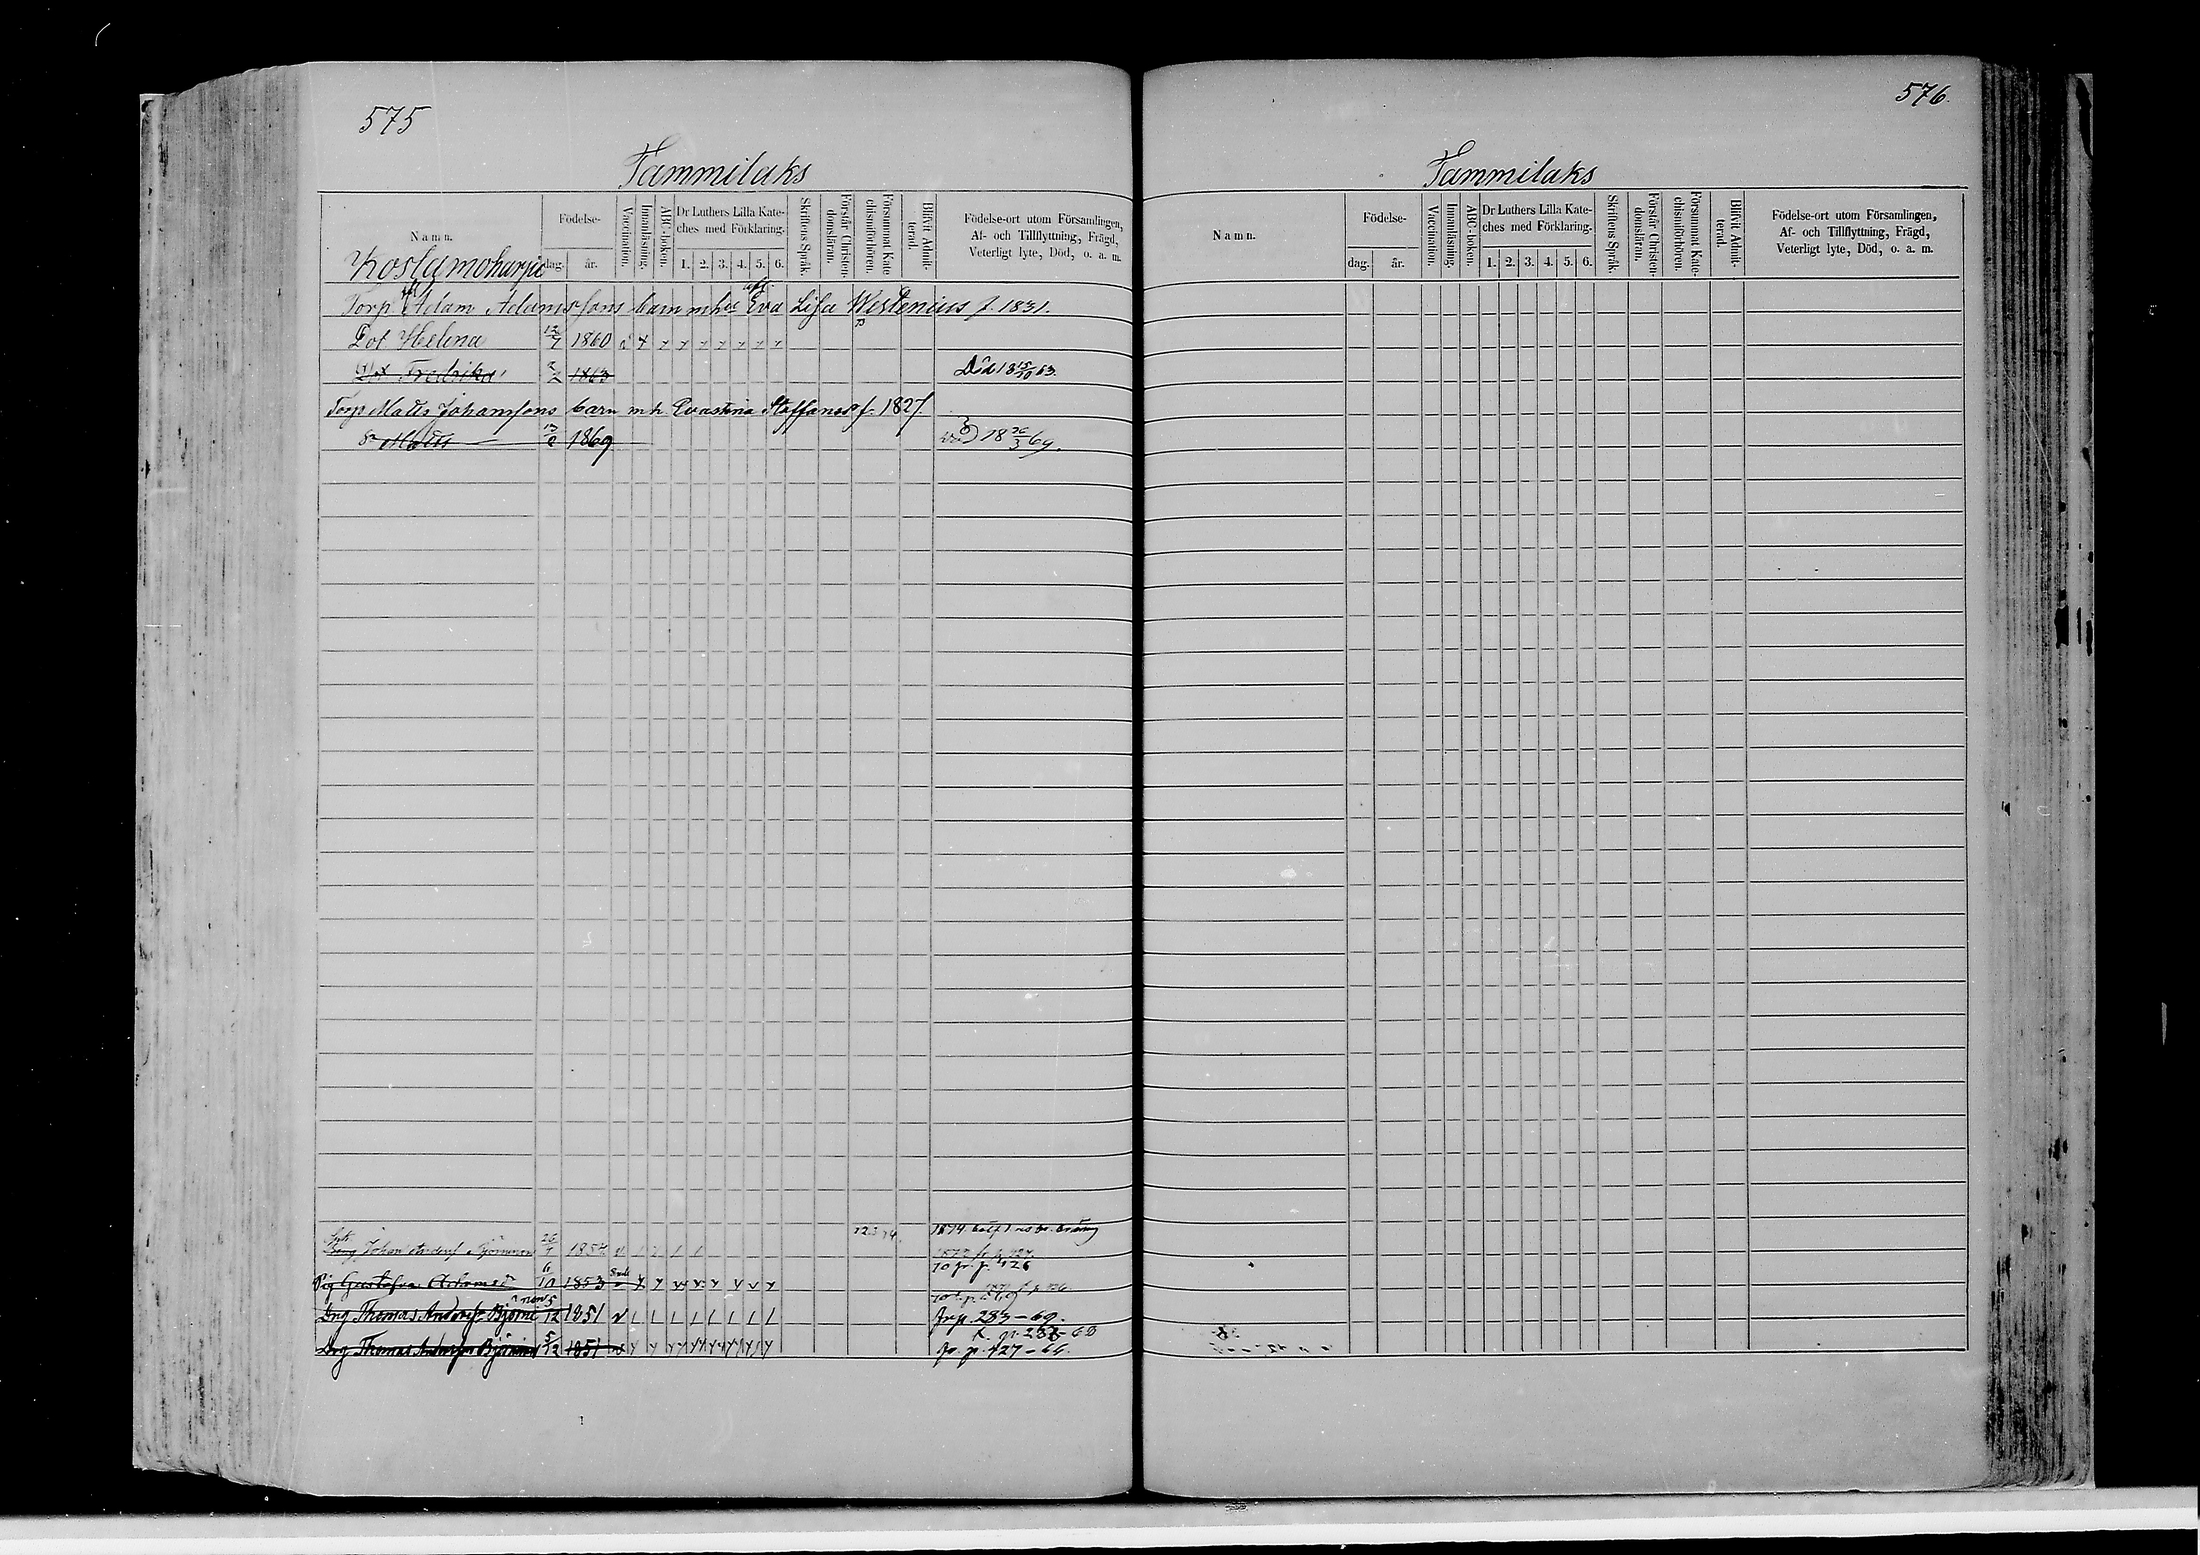 575
Tammilaks
Namn.
Födelse-
dag.
år.
Vaccination.
Innanläsning.
ABC-boken.
Dr Luthers Lilla Kate-
ches med Förklaring.
1. 2. 3. 4. 5. 6.
Skriftens Språk.
Förstår Christen-
domsläran.
Försummat Kate-
chismiförhören.
Blifvit Admit-
terad.
Födelse-ort utom Församlingen,
Af- och Tillflyttning, Frägd,
Veterligt lyte, Död, o. a. m.
Torp. Adam Adamssons barn mh Eva Lisa Westenius f. 1831.
Dot Helena 12/7 1860
Dot Fredrika 1863 Död 18 15/10 63.
Torp Matts Johanssons barn m h Evastina Staffansd f. 1827
Sn Matts 1869 18 26/3 69.
Johan 26 1854
1874
p. 426
Pig Gustafva 6/10 1853
Drg Thomas Andersn Björninen 5/12 1851 fr p. 233-69.
Drg Thomas Andersn Björninen 5/12 1851 fr p. 427-66.
576.
Tammilaks
Namn.
Födelse-
dag.
år.
Vaccination.
Innanläsning.
ABC-boken.
Dr Luthers Lilla Kate-
ches med Förklaring.
1. 2. 3. 4. 5. 6.
Skriftens Språk.
Förstår Christen-
domsläran.
Försummat Kate-
chismiförhören.
Blifvit Admit-
terad.
Födelse-ort utom Församlingen,
Af- och Tillflyttning, Frägd,
Veterligt lyte, Död, o. a. m.